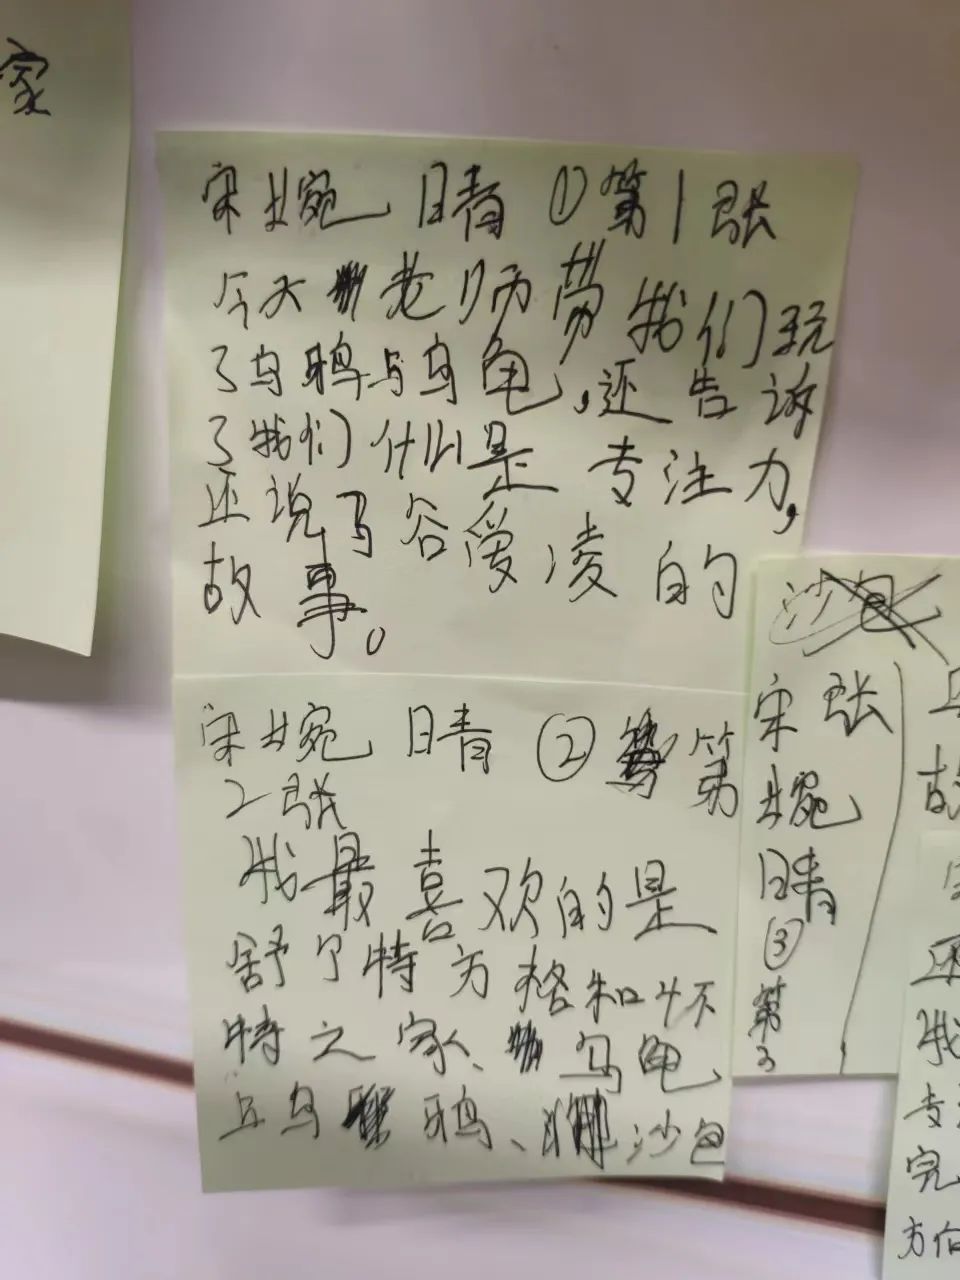 家
宋婉晴 ①第1张
今天老师带我们玩
了乌鸦与乌龟,还告诉
了我们什么是专注力,
还说了谷爱凌的
故事。
宋婉晴 ② 第
2张
我最喜欢的是
舒尔特方格和怀
特之家、乌龟
与乌鸦、沙包
沙包
宋 张
婉
晴
③
第
3
故
还
我
专注
完
方